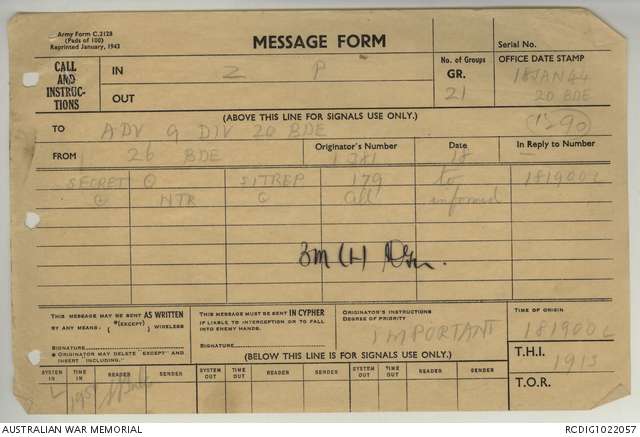 Army Form C.2128
(Pads of 100)
Reprinted January, 1943
MESSAGE FORM
Serial No.
CALL AND INSTRUC-TIONS
IN Z P
No. of Groups GR. 21
OFFICE DATE STAMP 18 JAN 44 20 BDE
OUT
(ABOVE THIS LINE FOR SIGNALS USE ONLY.)
TO ADV 9 DIV 20 BDE
FROM 26 BDE
Originator's Number I 981
Date 18
In Reply to Number —
SECRET ⊙ SITREP 179 to 181900L
⊙ NTR ⊙ all informed
BM (L)
THIS MESSAGE MAY BE SENT AS WRITTEN BY ANY MEANS. (*(EXCEPT) WIRELESS
SIGNATURE
* ORIGINATOR MAY DELETE "EXCEPT" AND INSERT INCLUDING."
THIS MESSAGE MUST BE SENT IN CYPHER IF LIABLE TO INTERCEPTION OR TO FALL INTO ENEMY HANDS.
SIGNATURE
ORIGINATOR'S INSTRUCTIONS DEGREE OF PRIORITY
IMPORTANT
TIME OF ORIGIN
181900L
(BELOW THIS LINE IS FOR SIGNALS USE ONLY.)
T.H.I. 1913
T.O.R.
SYSTEM IN TIME IN READER SENDER SYSTEM OUT TIME OUT READER SENDER SYSTEM OUT TIME OUT READER SENDER
L 1951
AUSTRALIAN WAR MEMORIAL
RCDIG1022057